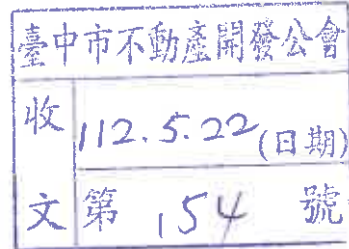 臺中市不動產開發公會
收文
112.5.22(日期)
第154號